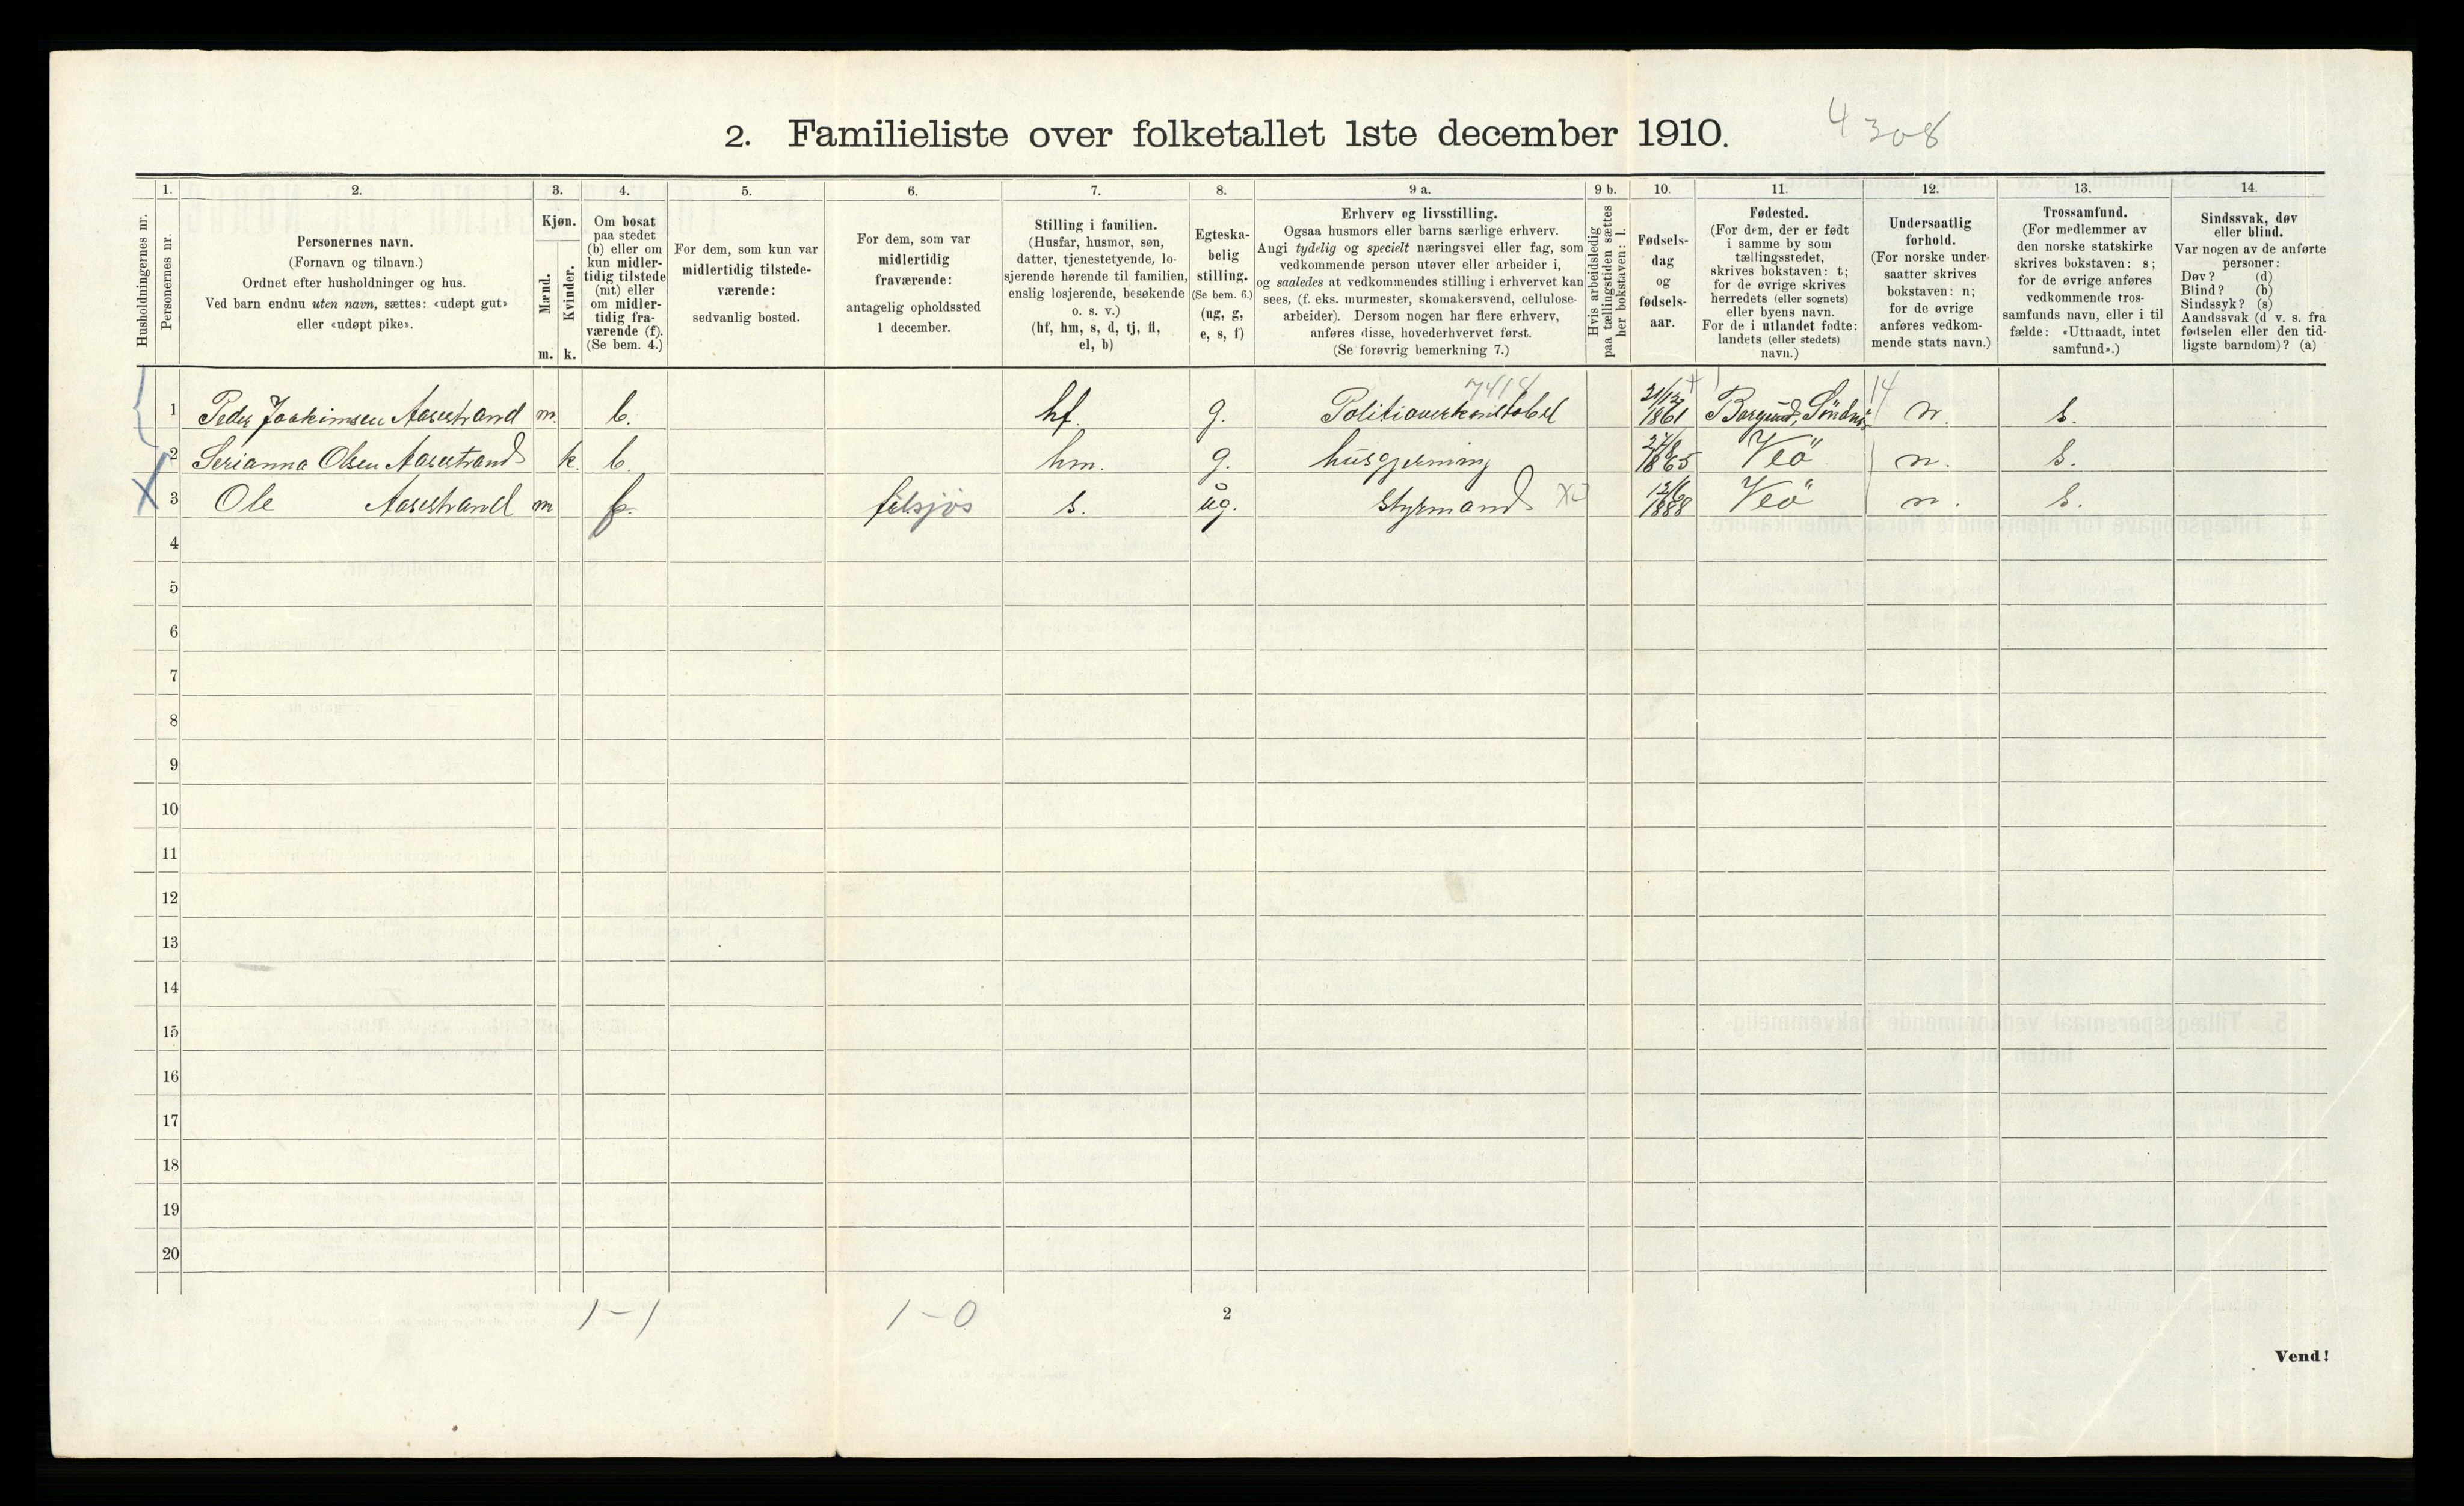 2. Familieliste over folketallet 1ste december 1910.
4308
Husholdningernes nr.
1.
Personernes nr.
2.
Personernes navn.
(Fornavn og tilnavn.)
Ordnet efter husholdninger og hus.
Ved barn endnu uten navn, sættes: «udøpt gut»
eller «udøpt pike».
3.
Kjøn.
Mænd.
Kvinder.
m. k.
4.
Om bosat
paa stedet
(b) eller om
kun midler-
tidig tilstede
(mt) eller
om midler-
tidig fra-
værende (f).
(Se bem. 4.)
5.
For dem, som kun var
midlertidig tilstede-
værende:
sedvanlig bosted.
6.
For dem, som var
midlertidig
fraværende:
antagelig opholdssted
1 december.
7.
Stilling i familien.
(Husfar, husmor, søn,
datter, tjenestetyende, lo-
sjerende hørende til familien,
enslig losjerende, besøkende
o. s. v.)
(hf, hm, s, d, tj, fl,
el, b)
8.
Egteska-
belig
stilling.
(Se bem. 6.)
(ug, g,
e, s, f)
9 a.
Erhverv og livsstilling.
Ogsaa husmors eller barns særlige erhverv.
Angi tydelig og specielt næringsvei eller fag, som
vedkommende person utøver eller arbeider i,
og saaledes at vedkommendes stilling i erhvervet kan
sees, (f. eks. murmester, skomakersvend, cellulose-
arbeider). Dersom nogen har flere erhverv,
anføres disse, hovederhvervet først.
(Se forøvrig bemerkning 7.)
9 b.
Hvis arbeidsledig
paa tællingstiden sættes
her bokstaven: l.
10.
Fødsels-
dag
og
fødsels-
aar.
11.
Fødested.
(For dem, der er født
i samme by som
tællingsstedet,
skrives bokstaven: t;
for de øvrige skrives
herredets (eller sognets)
eller byens navn.
For de i utlandet fødte:
landets (eller stedets)
navn.)
12.
Undersaatlig
forhold.
(For norske under-
saatter skrives
bokstaven: n;
for de øvrige
anføres vedkom-
mende stats navn.)
13.
Trossamfund.
(For medlemmer av
den norske statskirke
skrives bokstaven: s;
for de øvrige anføres
vedkommende tros-
samfunds navn, eller i til
fælde: «Uttraadt, intet
samfund».)
14.
Sindssvak, døv
eller blind.
Var nogen av de anførte
personer:
Døv? (d)
Blind? (b)
Sindssyk? (s)
Aandssvak (d v. s. fra
fødselen eller den tid-
ligste barndom)? (a)
7414 14
1 Peder Joakimsen Aasestrand m. b. hf. g. Politioverkonstabel 21/12 1861 Borgund, Söndm. n. s.
2 Serianna Olsen Aasestrand k. b. hm. g. husgjerning 1865 Veö n. s.
3 Ole Aasestrand m f. tilsjøs s. ug. Styrmand 1888 Veö n. s.
4
5
6
7
8
9
10
11
12
13
14
15
16
17
18
19
20
1-1 1-0
2
Vend!